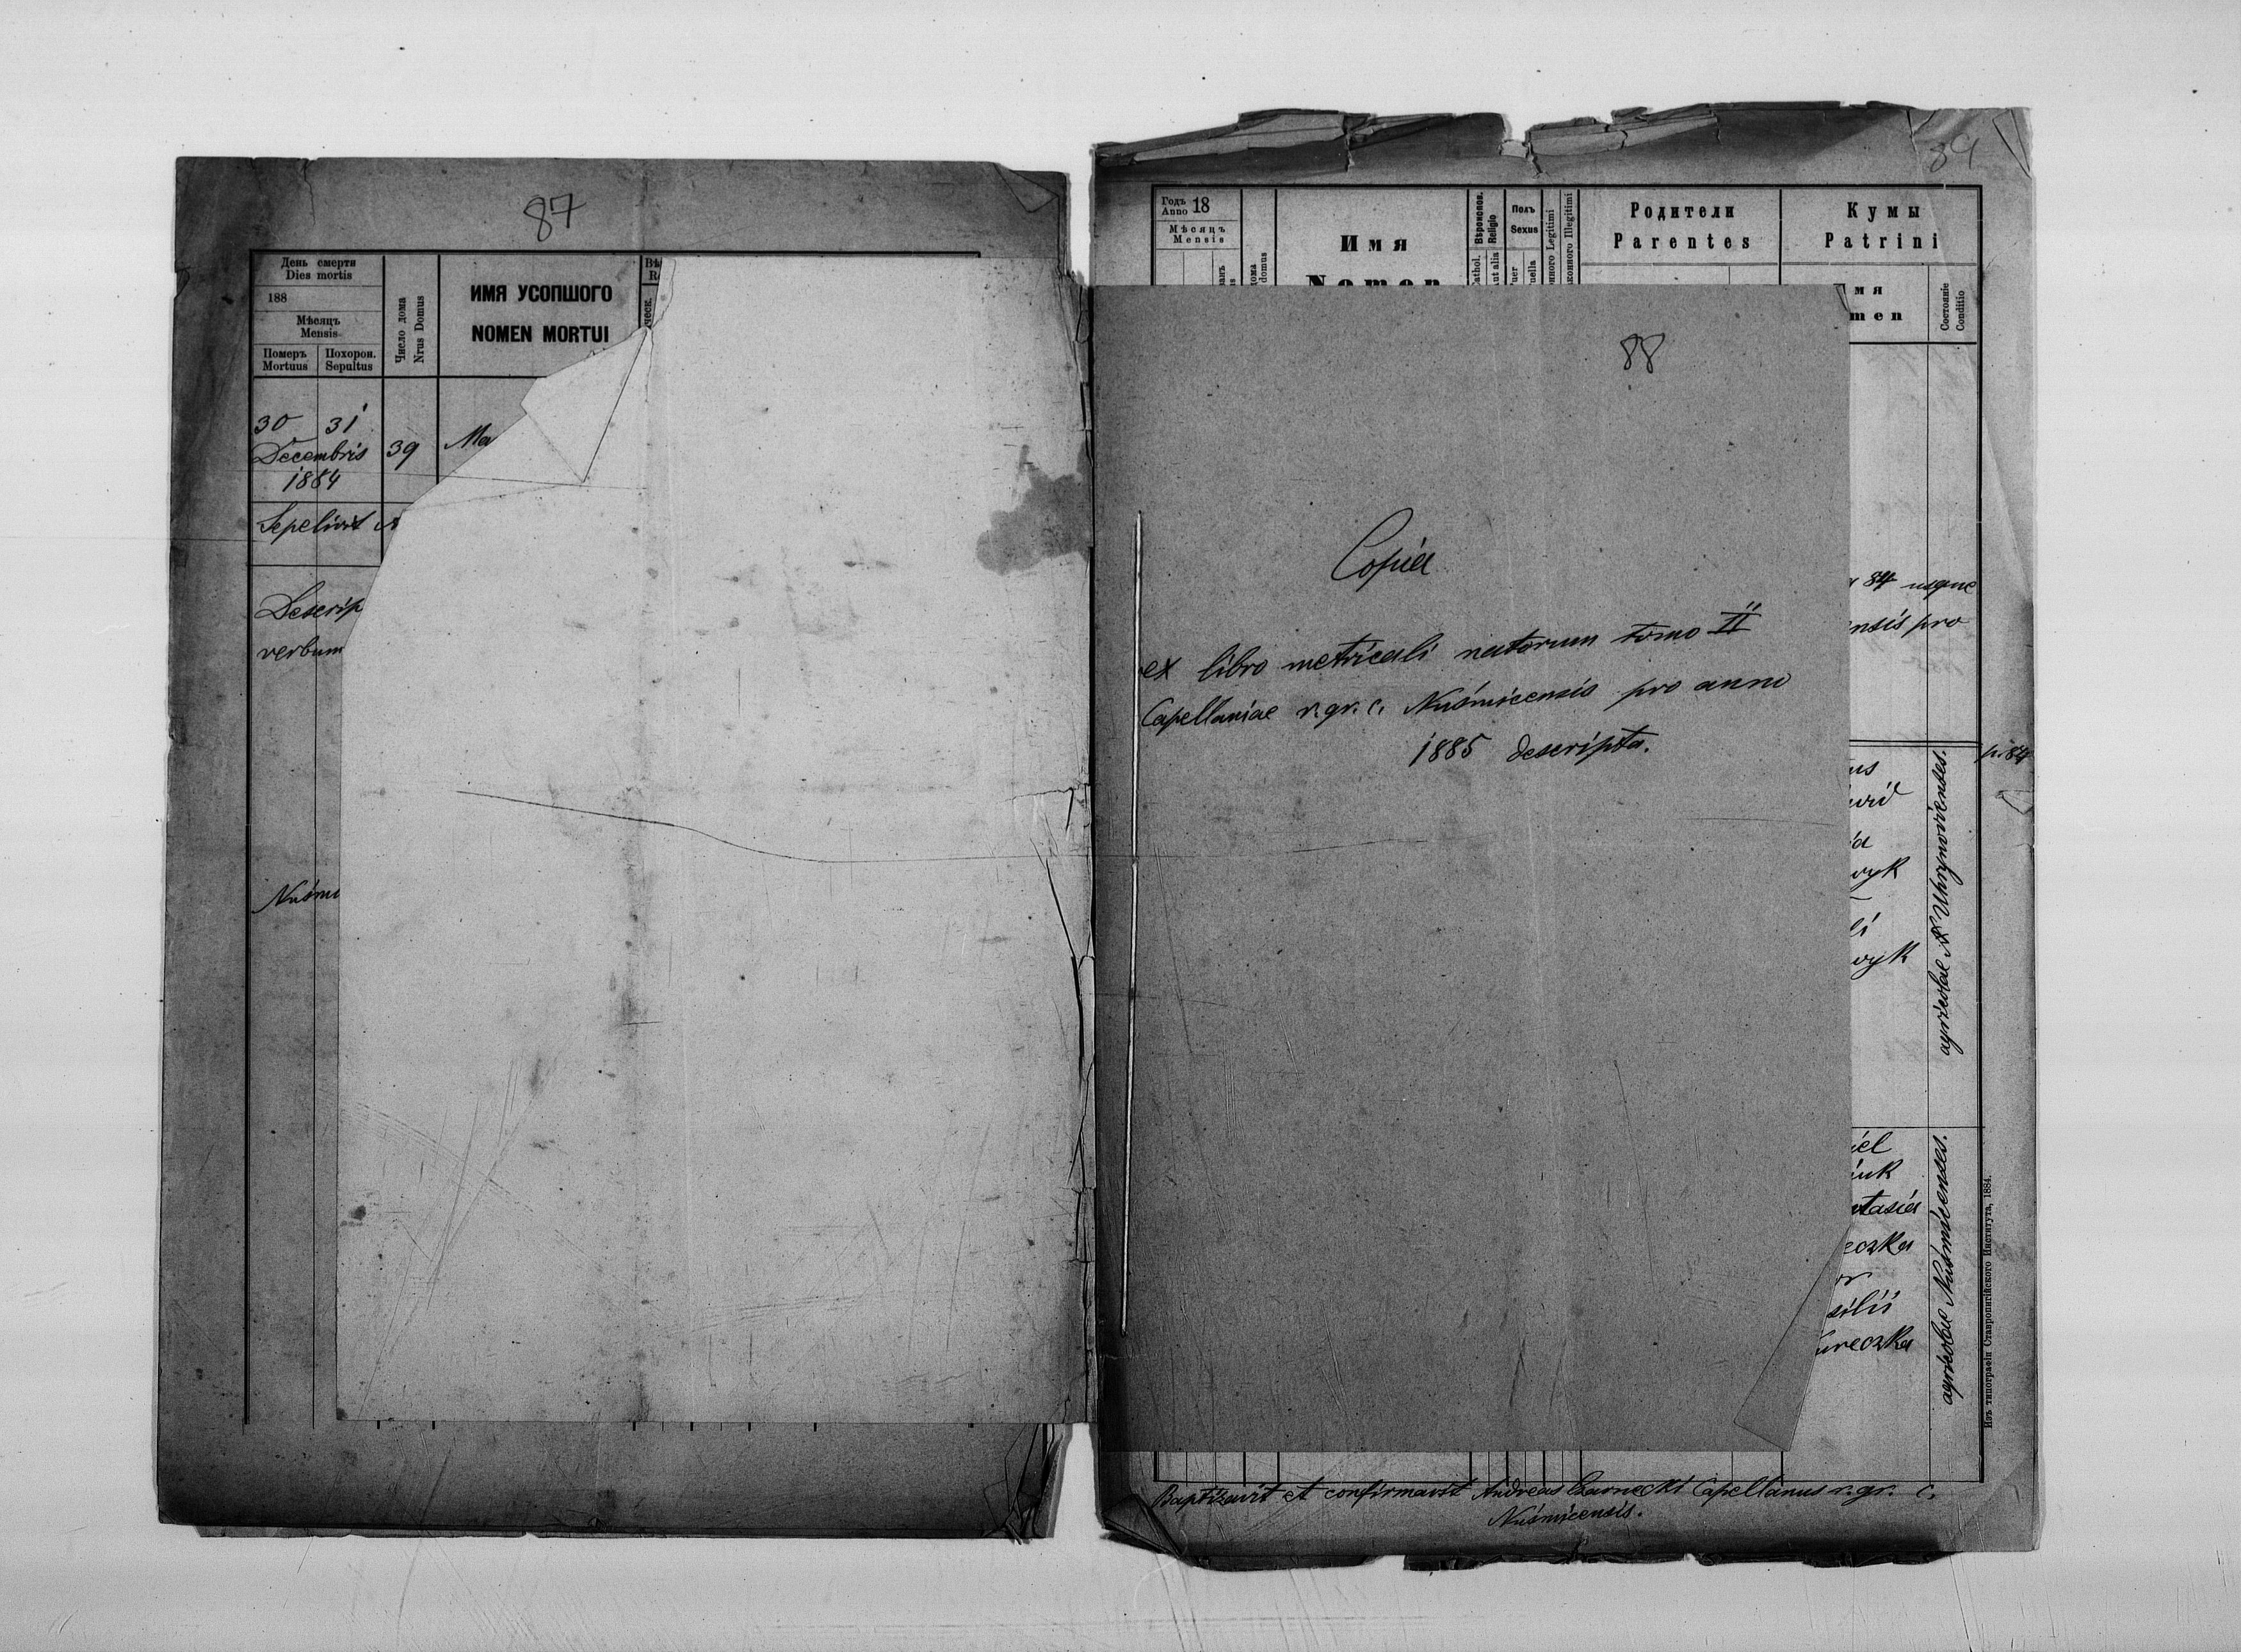 87
День смерти
Dies mortis
188
Мѣсяцъ
Mensis
Померъ
Mortuus
Похорон.
Sepultus
Число дома
Nrus Domus
ИМЯ УСОПШОГО
NOMEN MORTUI
30 31
Decembris
1884
39
Ma
Sepelivit
Descrip
verbum
Nuśmi
89
Годъ
Anno 18
Мѣсяцъ
Mensis
Имя
Nomen
Вѣроиспов.
Religio
Полъ
Sexus
Родители
Parentes
Кумы
Patrini
мя
men
Состоянiе
Conditio
88
Copia
ex libro metricali natorum tomo II
Capellaniae r. gr. c. Nuśmicensis pro anno
1885 descripta.
84 usque
ensis pro
p. 84
us
vyk
li
vyk
agricolae Uhrynovienses.
iel
iuk
tasia
eczka
silii
ureczka
agricolae Nuśmicenses.
Изъ типографiи Ставропигiйского Института, 1884.
Baptizavit et confirmavit Andreas Czarnecki Capellanus r. gr. c.
Nuśmicensis.